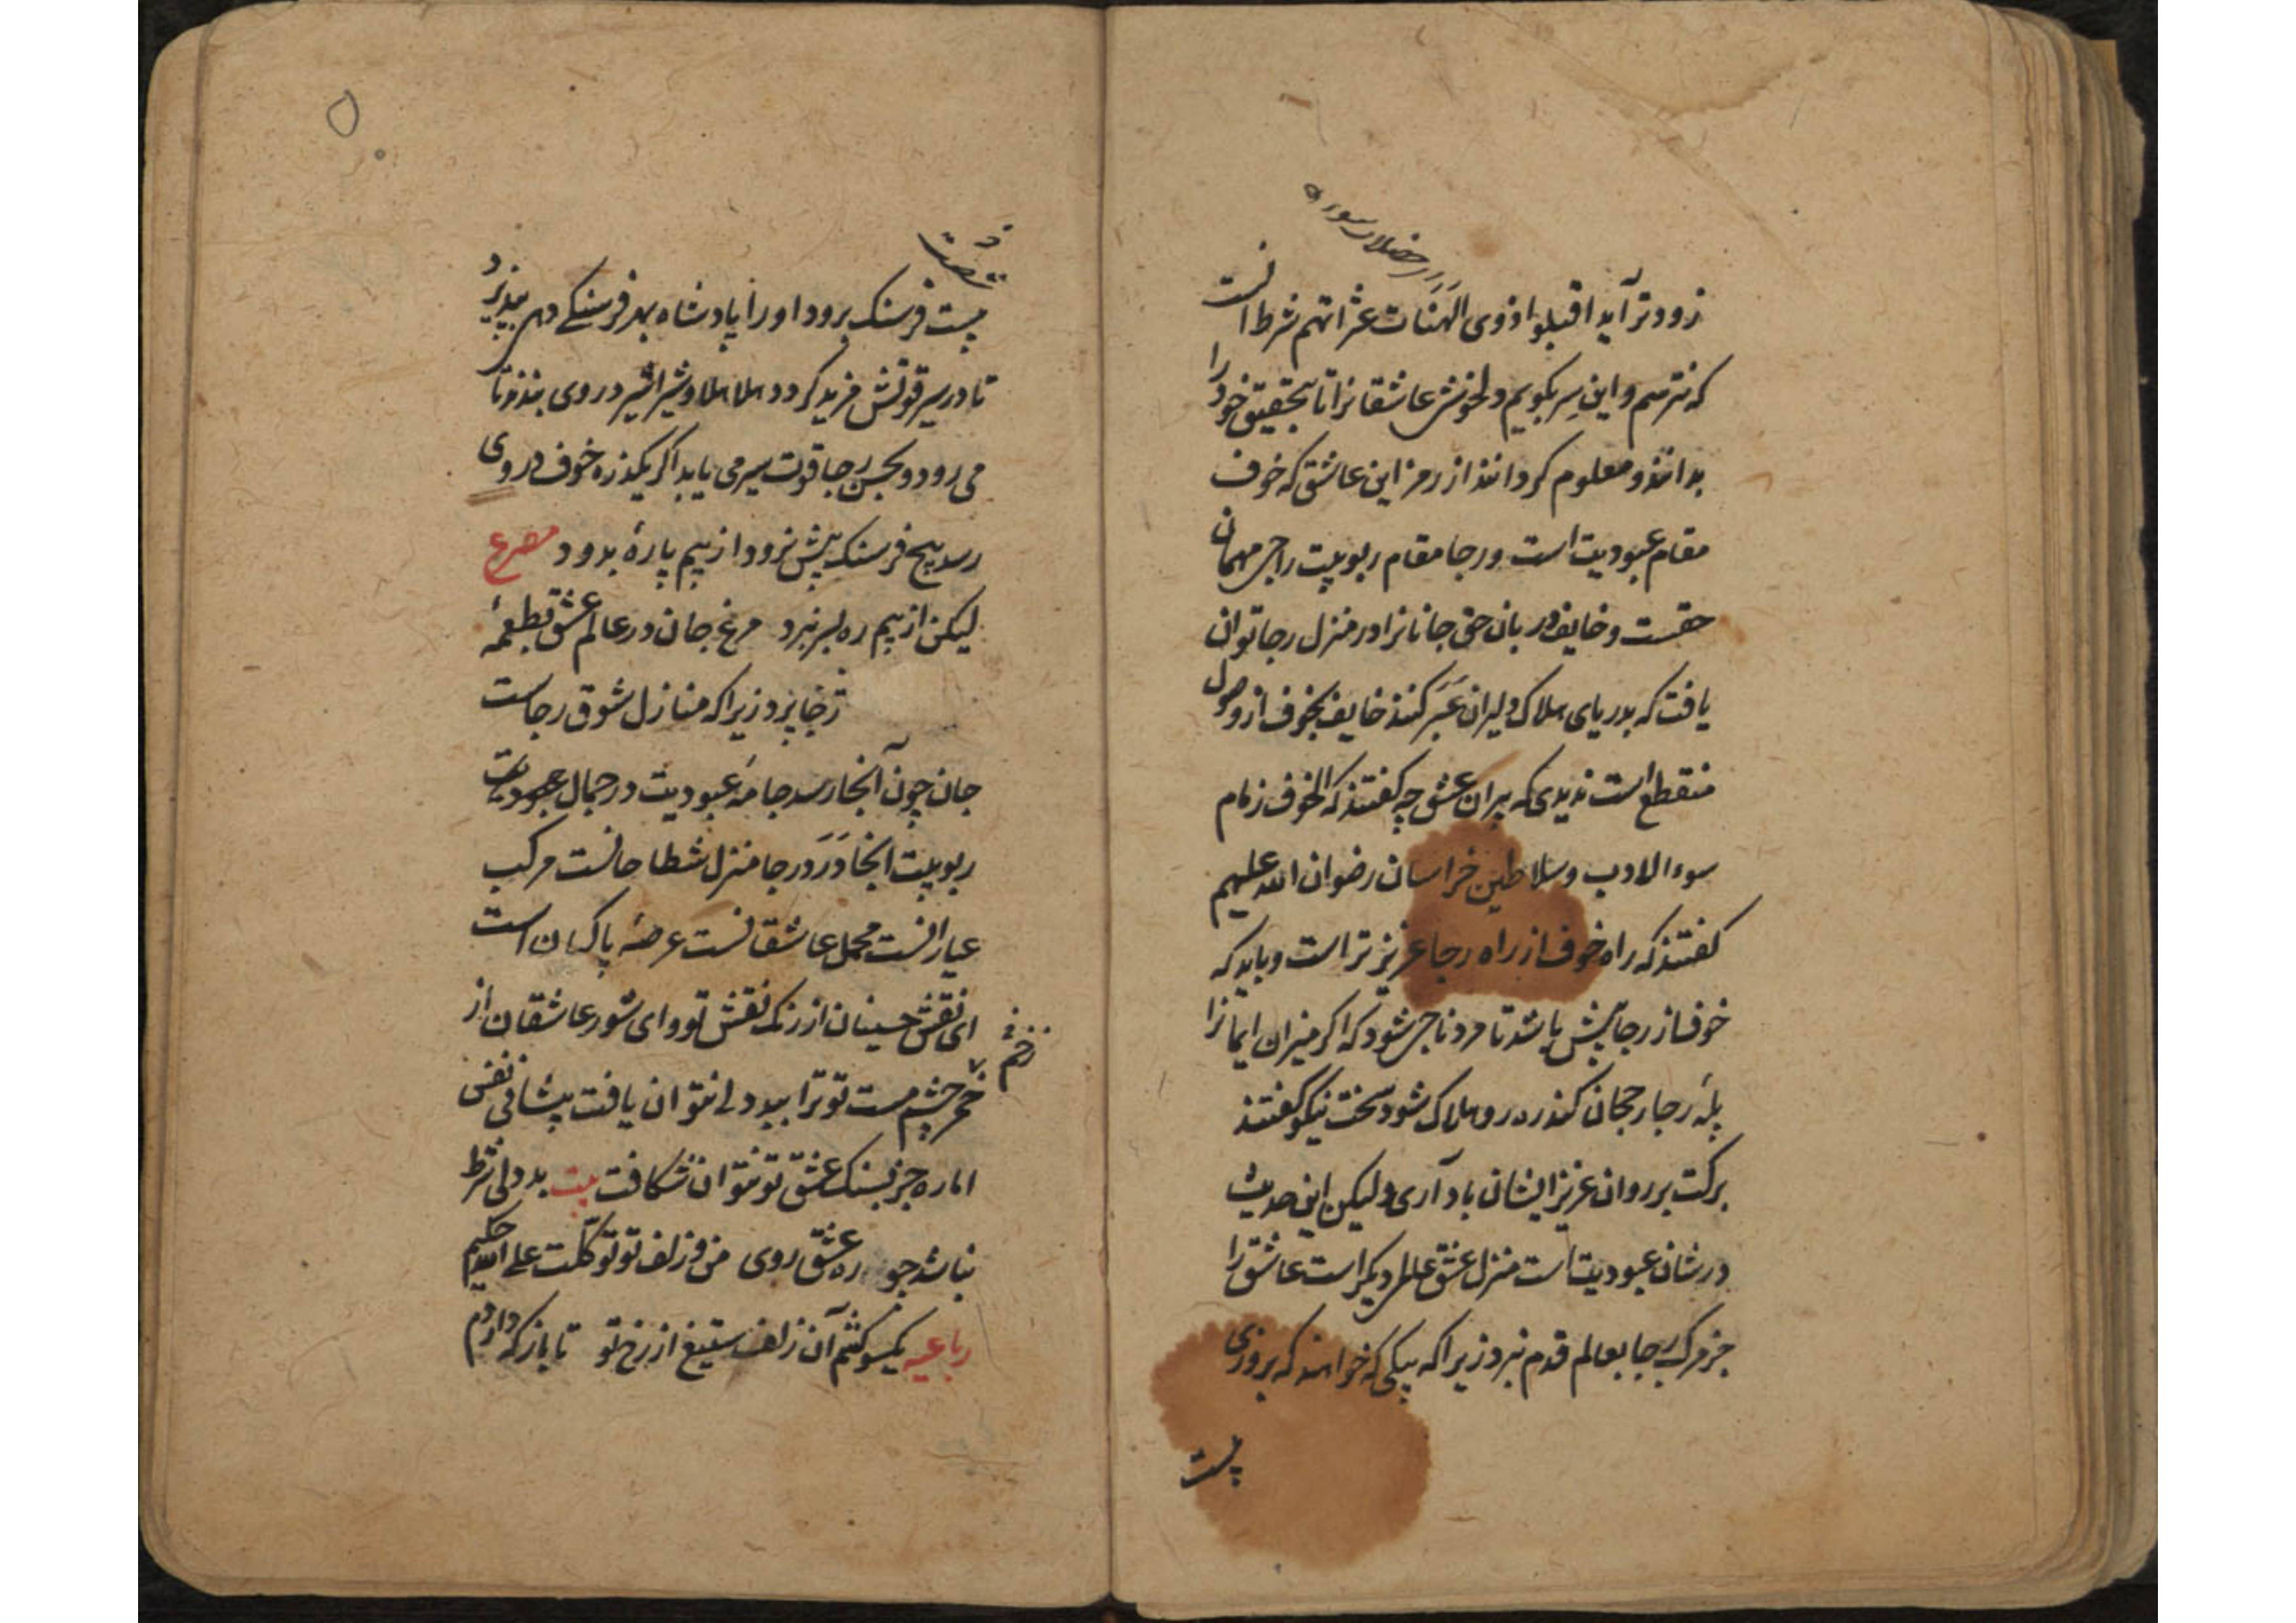 خصلات سوء
زودتر آید اقیلوا ذوی الهنات عثراتهم شرط انست
که نترسم و این سر بکویم دلخوش عاشقانرا تا بتحقیق خود را
بدانند و معلوم کردانند از رمز این عاشق که خوف
مقام عبودیت است و رجا مقام ربوبیت راجی مهمان
حقست و خایف دربان حق جانانرا در منزل رجا توان
یافت که بدریای هلاک دلیران عبر کنند خایف بخوف از وصول
منقطع است ندیدی که پیران عشق چه کفتند که الخوف زمام
سوء الادب و سلاطین خراسان رضوان الله علیهم
کفتند که راه خوف از راه رجا عزیزتر است و باید که
خوف از رجا بیش باشد تا مرد ناجی شود که اکر میزان ایمانرا
پلۀ رجا رجحان کند ره رو هلاک شود سخت نیکو کفتند
برکت بر روان عزیز ایشان باد آری ولیکن این حدیث
در شان عبودیت است منزل عشق عالمی دیکر است عاشق را
جز مرکب رجا بعالم قدم نبرد زیرا که پیکی که خواهند که بروزی
بیست
۵
بیست فرسنک برود او را پادشاه بهر فرسنکی دهی بپذیرد
تا در سیر قوتش مزید کردد هلا هلا و شیرا شیر در وی بندند تا
می رود و بحسن رجا قوت سیر می یابد اکر یکذره خوف در وی
رسد پنج فرسنک بیش نرود از بیم پارۀ بدود مصرع
لیکن از بیم ره بسر نبرد مرغ جان در عالم عشق قطعۀ
ز خا پرد زیرا که منازل شوق رجاست
جان چون آنجا رسد جامۀ عبودیت در جمال
ربوبیت انجا درد رجا منزل شطاحانست مرکب
عیارانست محمل عاشقانست عرصۀ پاکبان است
ای نقش حسینان از رنک نقش تو و ای شور عاشقان از
زخم
خمر چشم مست تو ترا ببیدلی نتوان یافت پیشانی نفس
اماره جز بسنک عشق تو نتوان شکافت بیت بددلی شرط
نباشد چو ره عشق روی من و زلف تو توکلت علی الله حکیم
رباعیه یکسو کشم آن زلف ستیغ از رخ تو تا باز که دارم